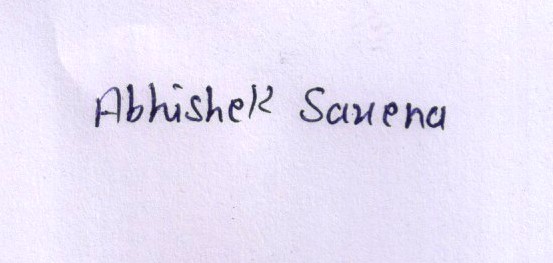 Abhishek Saxena